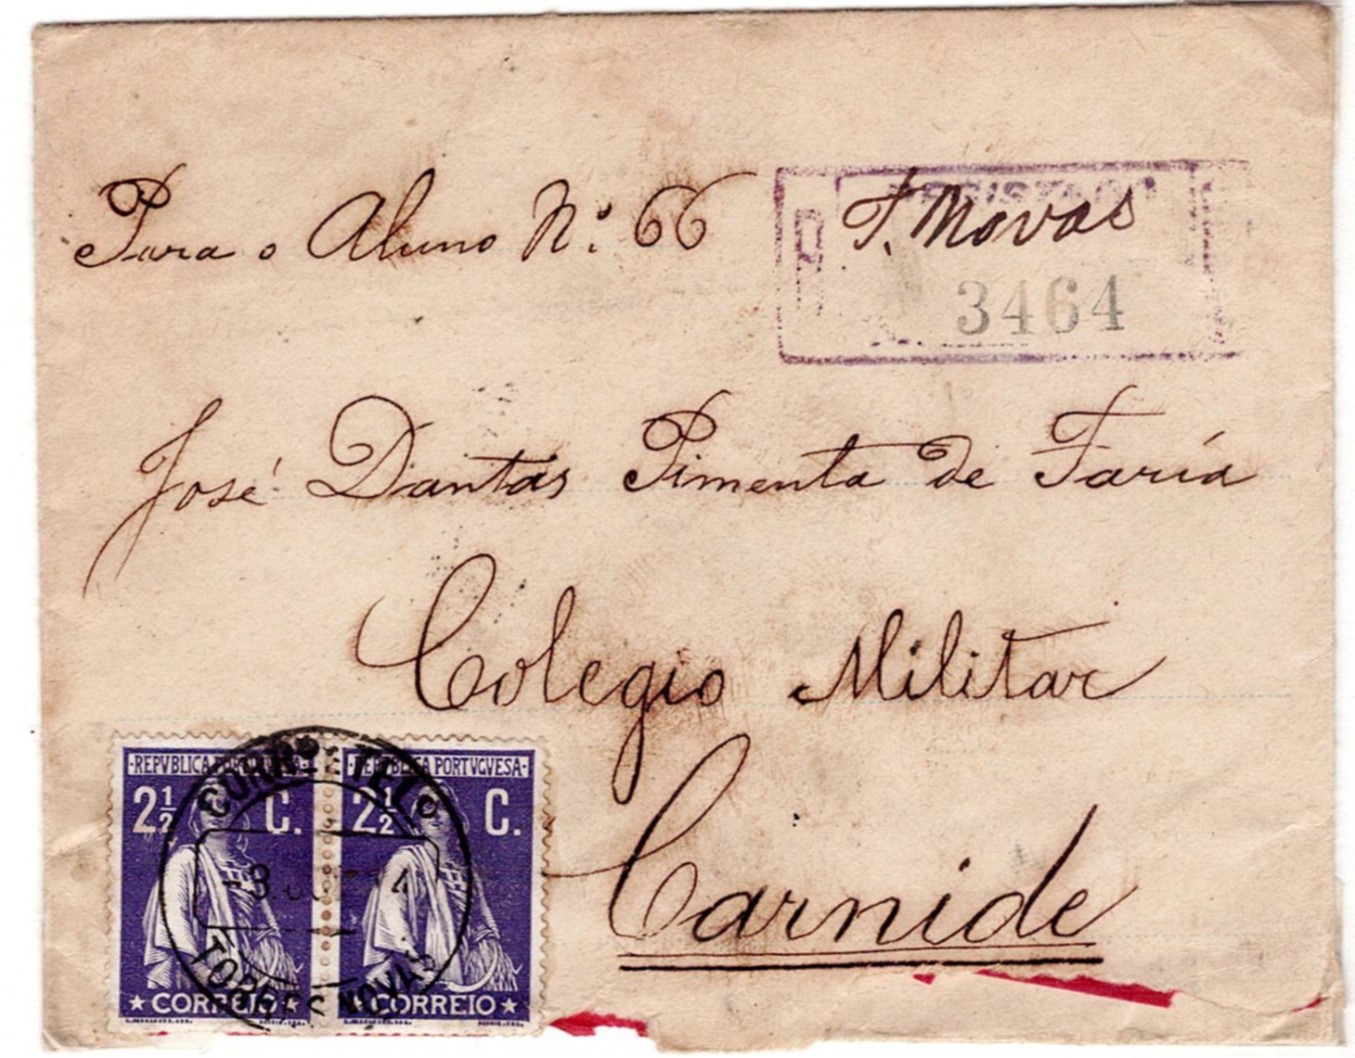 Para o Aluno Nº 66
REGISTADO
T. Novas
R
3464
José Dantas Pimenta de Faria
Colegio Militar
Carnide
-REPVBLICA PORTVGVESA-
2 1/2 C.
CORREIO
-REPVBLICA PORTVGVESA-
2 1/2 C.
CORREIO
CORRº E TELº
TORRES NOVAS